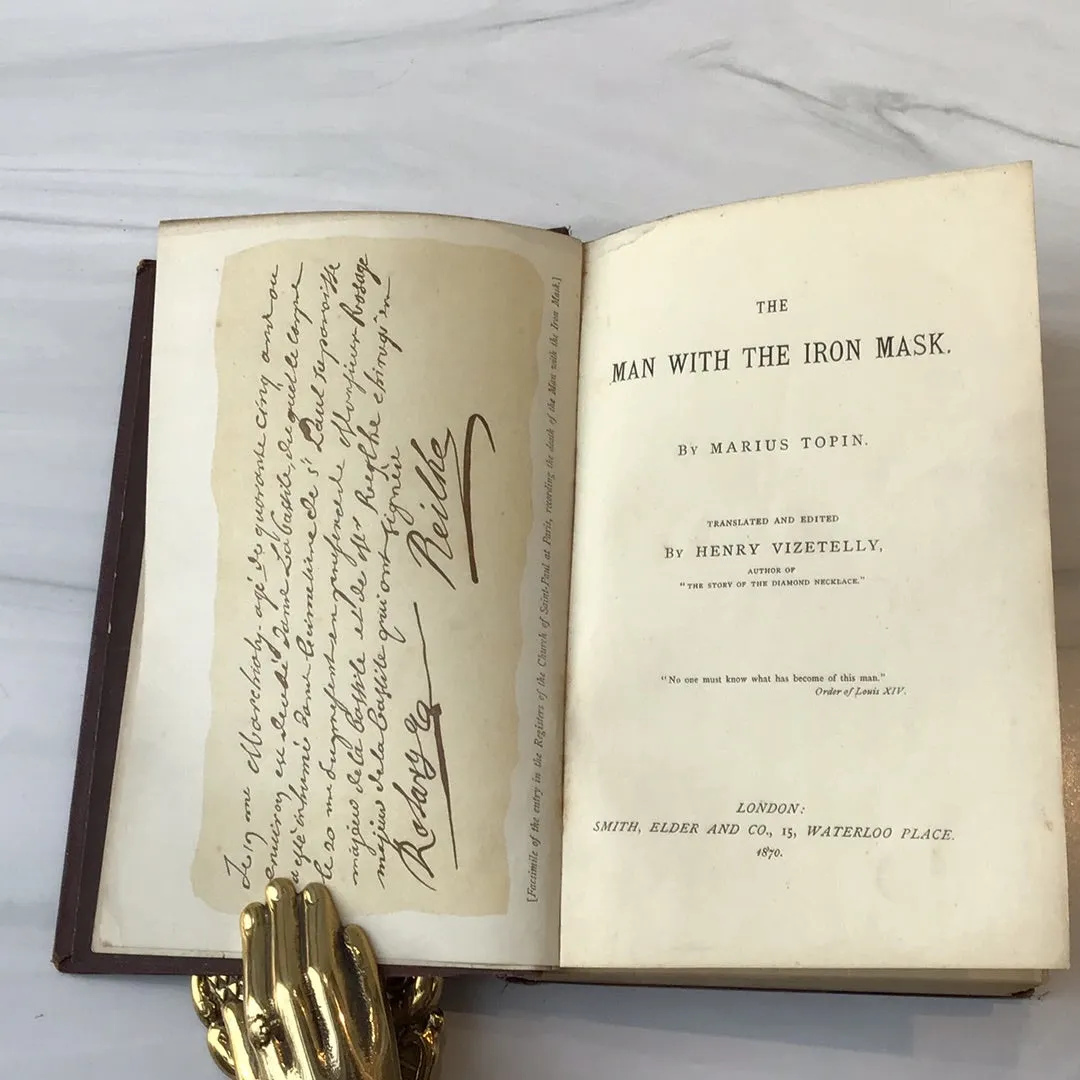 Le 19 me Marchioly, agé de quarante cinq ans ou
environ est decédé dans La bastille, duquel le corps
a esté inhumé dans le cimetiere de St Paul sa paroisse
le 20 me du present en presence de Monsieur Rosage
majeur de la bastille et de Mr Reglhe chirurgien
majeur de la bastille qui ont signéz
Rosarges Reilhe
[Facsimile of the entry in the Registers of the Church of Saint-Paul at Paris, recording the death of the Man with the Iron Mask.]
THE
MAN WITH THE IRON MASK.
By MARIUS TOPIN.
TRANSLATED AND EDITED
By HENRY VIZETELLY,
AUTHOR OF
"THE STORY OF THE DIAMOND NECKLACE."
"No one must know what has become of this man."
Order of Louis XIV.
LONDON:
SMITH, ELDER AND CO., 15, WATERLOO PLACE.
1870.